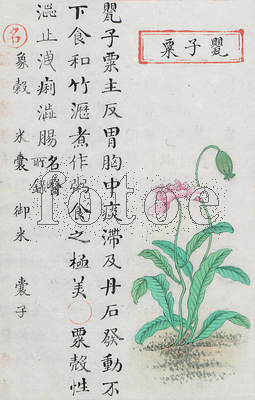 罌子粟
罌子粟主反胃胸中痰滯及丹石發動不
下食和竹瀝煮作粥食之極美〇粟殼性
澁止洩痢澁腸名醫所錄
名
象穀 米囊 御米 囊子
fotoe